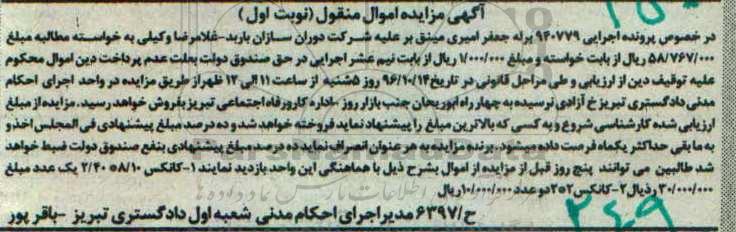 آگهی مزایده اموال منقول (نوبت اول)
در خصوص پرونده اجرایی ۹۴۰۷۷۹ برله جعفر امیری مینق بر علیه شرکت دوران سازان بارید-غلامرضا وکیلی به خواسته مطالبه مبلغ
۵۸/۷۶۷/۰۰۰ ریال از بابت خواسته و مبلغ ۱/۰۰۰/۰۰۰ ریال از بابت نیم عشر اجرایی در حق صندوق دولت بعلت عدم پرداخت دین اموال محکوم
علیه توقیف دین از ارزیابی و طی مراحل قانونی در تاریخ ۹۶/۱۰/۱۴ روز ۵شنبه از ساعت ۱۱ الی ۱۲ ظهر از طریق مزایده در واحد اجرای احکام
مدنی دادگستری تبریز خ آزادی نرسیده به چهارراه ابوریحان جنب بازار روز -اداره کار و رفاه اجتماعی تبریز بفروش خواهد رسید. مزایده از مبلغ
ارزیابی شده کارشناسی شروع و به کسی که بالاترین مبلغ را پیشنهاد نماید فروخته خواهد شد و ده درصد مبلغ پیشنهادی فی المجلس اخذ و
به مابقی حداکثر یکماه فرصت داده میشود. برنده مزایده به هر عنوان انصراف نماید ده درصد مبلغ پیشنهادی بنفع صندوق دولت ضبط خواهد
شد طالبین می توانند پنج روز قبل از مزایده از اموال بشرح ذیل با هماهنگی این واحد بازدید نمایند ۱-کانکس ۸/۱۰*۲/۴۰ یک عدد مبلغ
۳۰/۰۰۰/۰۰۰ رذیال ۲-کانکس ۲*۲ دو عدد ۱۰/۰۰۰/۰۰۰ ریال
ح/۶۳۹۷ مدیر اجرای احکام مدنی شعبه اول دادگستری تبریز -باقر پور
۲۴۹